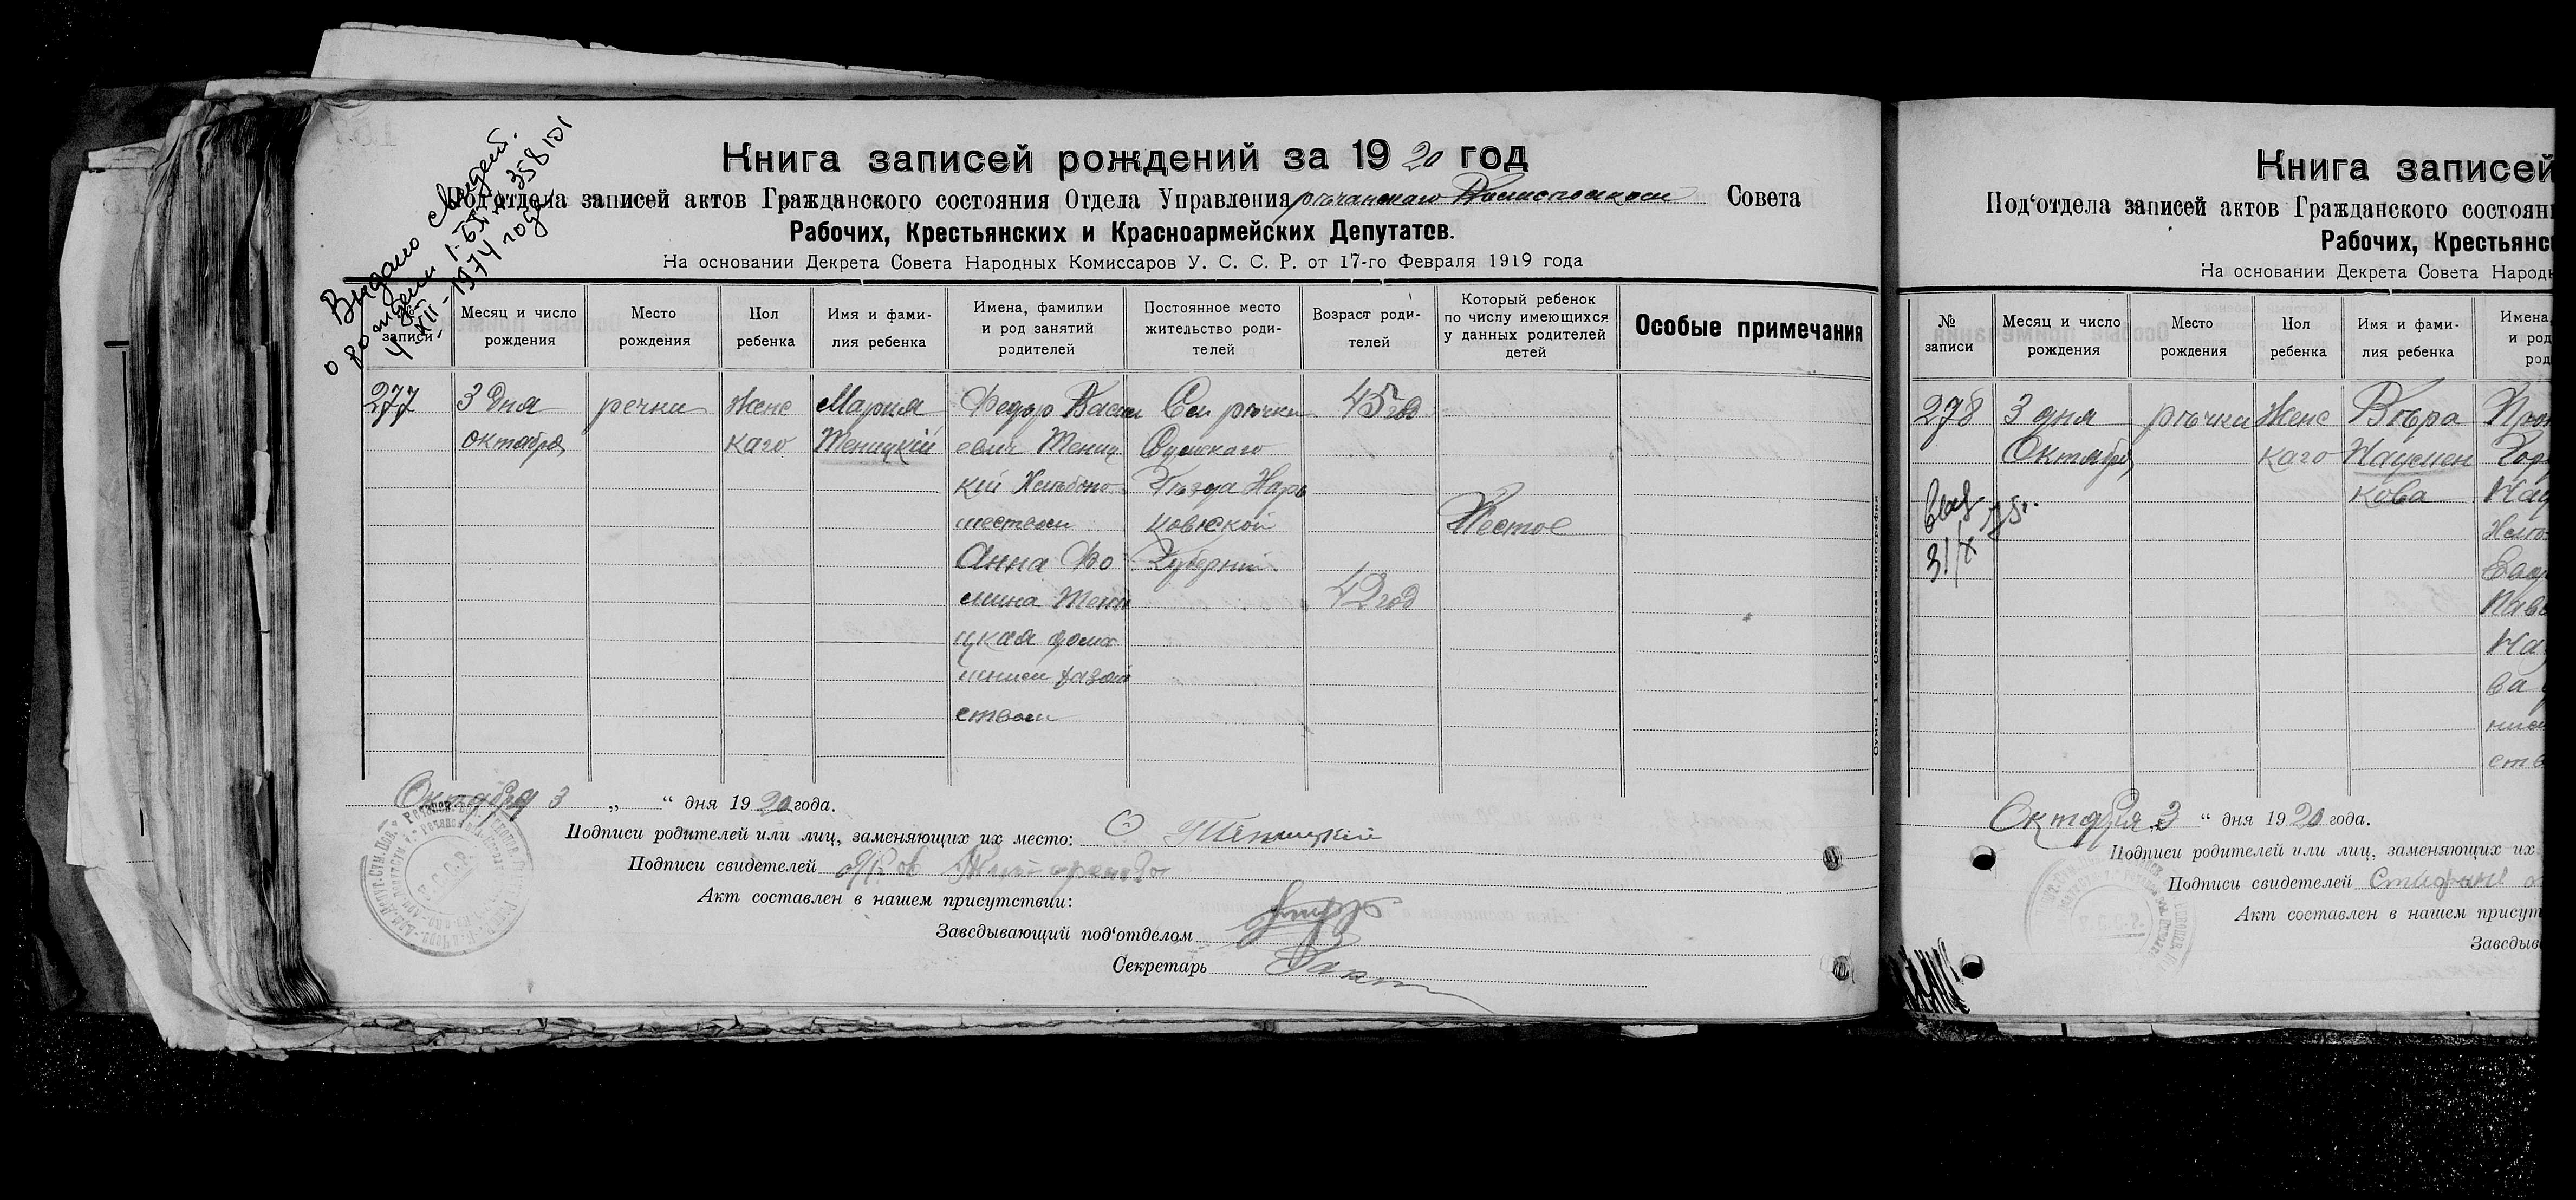 Выдано свидет.
о рождении I-БП № 358101
4-XII-1974 года
Книга записей рождений за 1920 год
Под‘отдела записей актов Гражданского состояния Отдела Управления речанскаго Совета
Рабочих, Крестьянских и Красноармейских Депутатов.
На основании Декрета Совета Народных Комиссаров У. С. С. Р. от 17-го Февраля 1919 года
№ записи
Месяц и число рождения
Место рождения
Пол ребенка
Имя и фами-
лия ребенка
Имена, фамилии
и род занятий
родителей
Постоянное место
жительство роди-
телей
Возраст роди-
телей
Который ребенок
по числу имеющихся
у данных родителей
детей
Особые примечания
277
3 дня
октября
речки
женс
каго
Мария
Теницкій
Федор Васил
евич Тениц
кій Хлебопа
шеством
Анна Фо
мина Тени
цкая дома
шнием хазяй
ством
Сел речки
Сумскаго
Уезда Харь
ковской
Губерніи
45 год
42 год
Шестое
Октября 3 „ “ дня 1920 года.
Подписи родителей или лиц, заменяющих их место:
Подписи свидетелей
Акт составлен в нашем присутствии:
Заведывающий под‘отделом
Секретарь
Сумы, 1-ая Советская типография
Книга записей
Под‘отдела записей актов Гражданского состоян
Рабочих, Крестьянс
На основании Декрета Совета Народн
№
записи
Месяц и число
рождения
Место
рождения
Пол
ребенка
Имя и фами-
лия ребенка
Имена,
и род
род
278
3 дня
Октября
речки
Женс
каго
Вера
Наумен
кова
31/X 75г.
Октября 3 “ дня 1920 года.
Подписи родителей или лиц, заменяющих их
Подписи свидетелей
Акт составлен в нашем присут
Заведыв